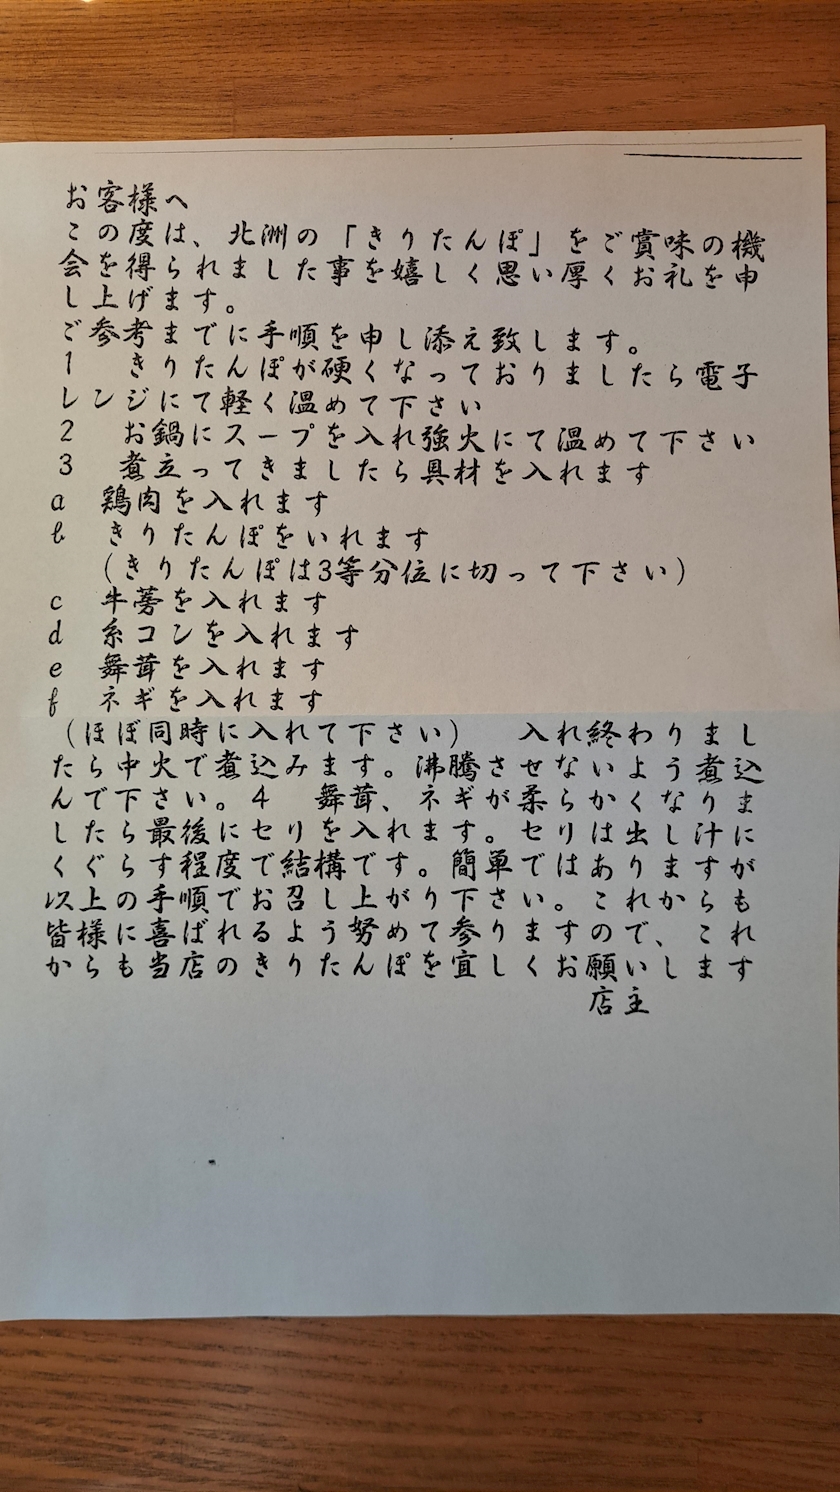 お客様へ
この度は、北洲の「きりたんぽ」をご賞味の機
会を得られました事を嬉しく思い厚くお礼を申
し上げます。
ご参考までに手順を申し添え致します。
1　きりたんぽが硬くなっておりましたら電子
レンジにて軽く温めて下さい
2　お鍋にスープを入れ強火にて温めて下さい
3　煮立ってきましたら具材を入れます
a　鶏肉を入れます
b　きりたんぽをいれます
（きりたんぽは3等分位に切って下さい）
c　牛蒡を入れます
d　糸コンを入れます
e　舞茸を入れます
f　ネギを入れます
（ほぼ同時に入れて下さい）　入れ終わりまし
たら中火で煮込みます。沸騰させないよう煮込
んで下さい。4　舞茸、ネギが柔らかくなりま
したら最後にセリを入れます。セリは出し汁に
くぐらす程度で結構です。簡単ではありますが
以上の手順でお召し上がり下さい。これからも
皆様に喜ばれるよう努めて参りますので、これ
からも当店のきりたんぽを宜しくお願いします
店主